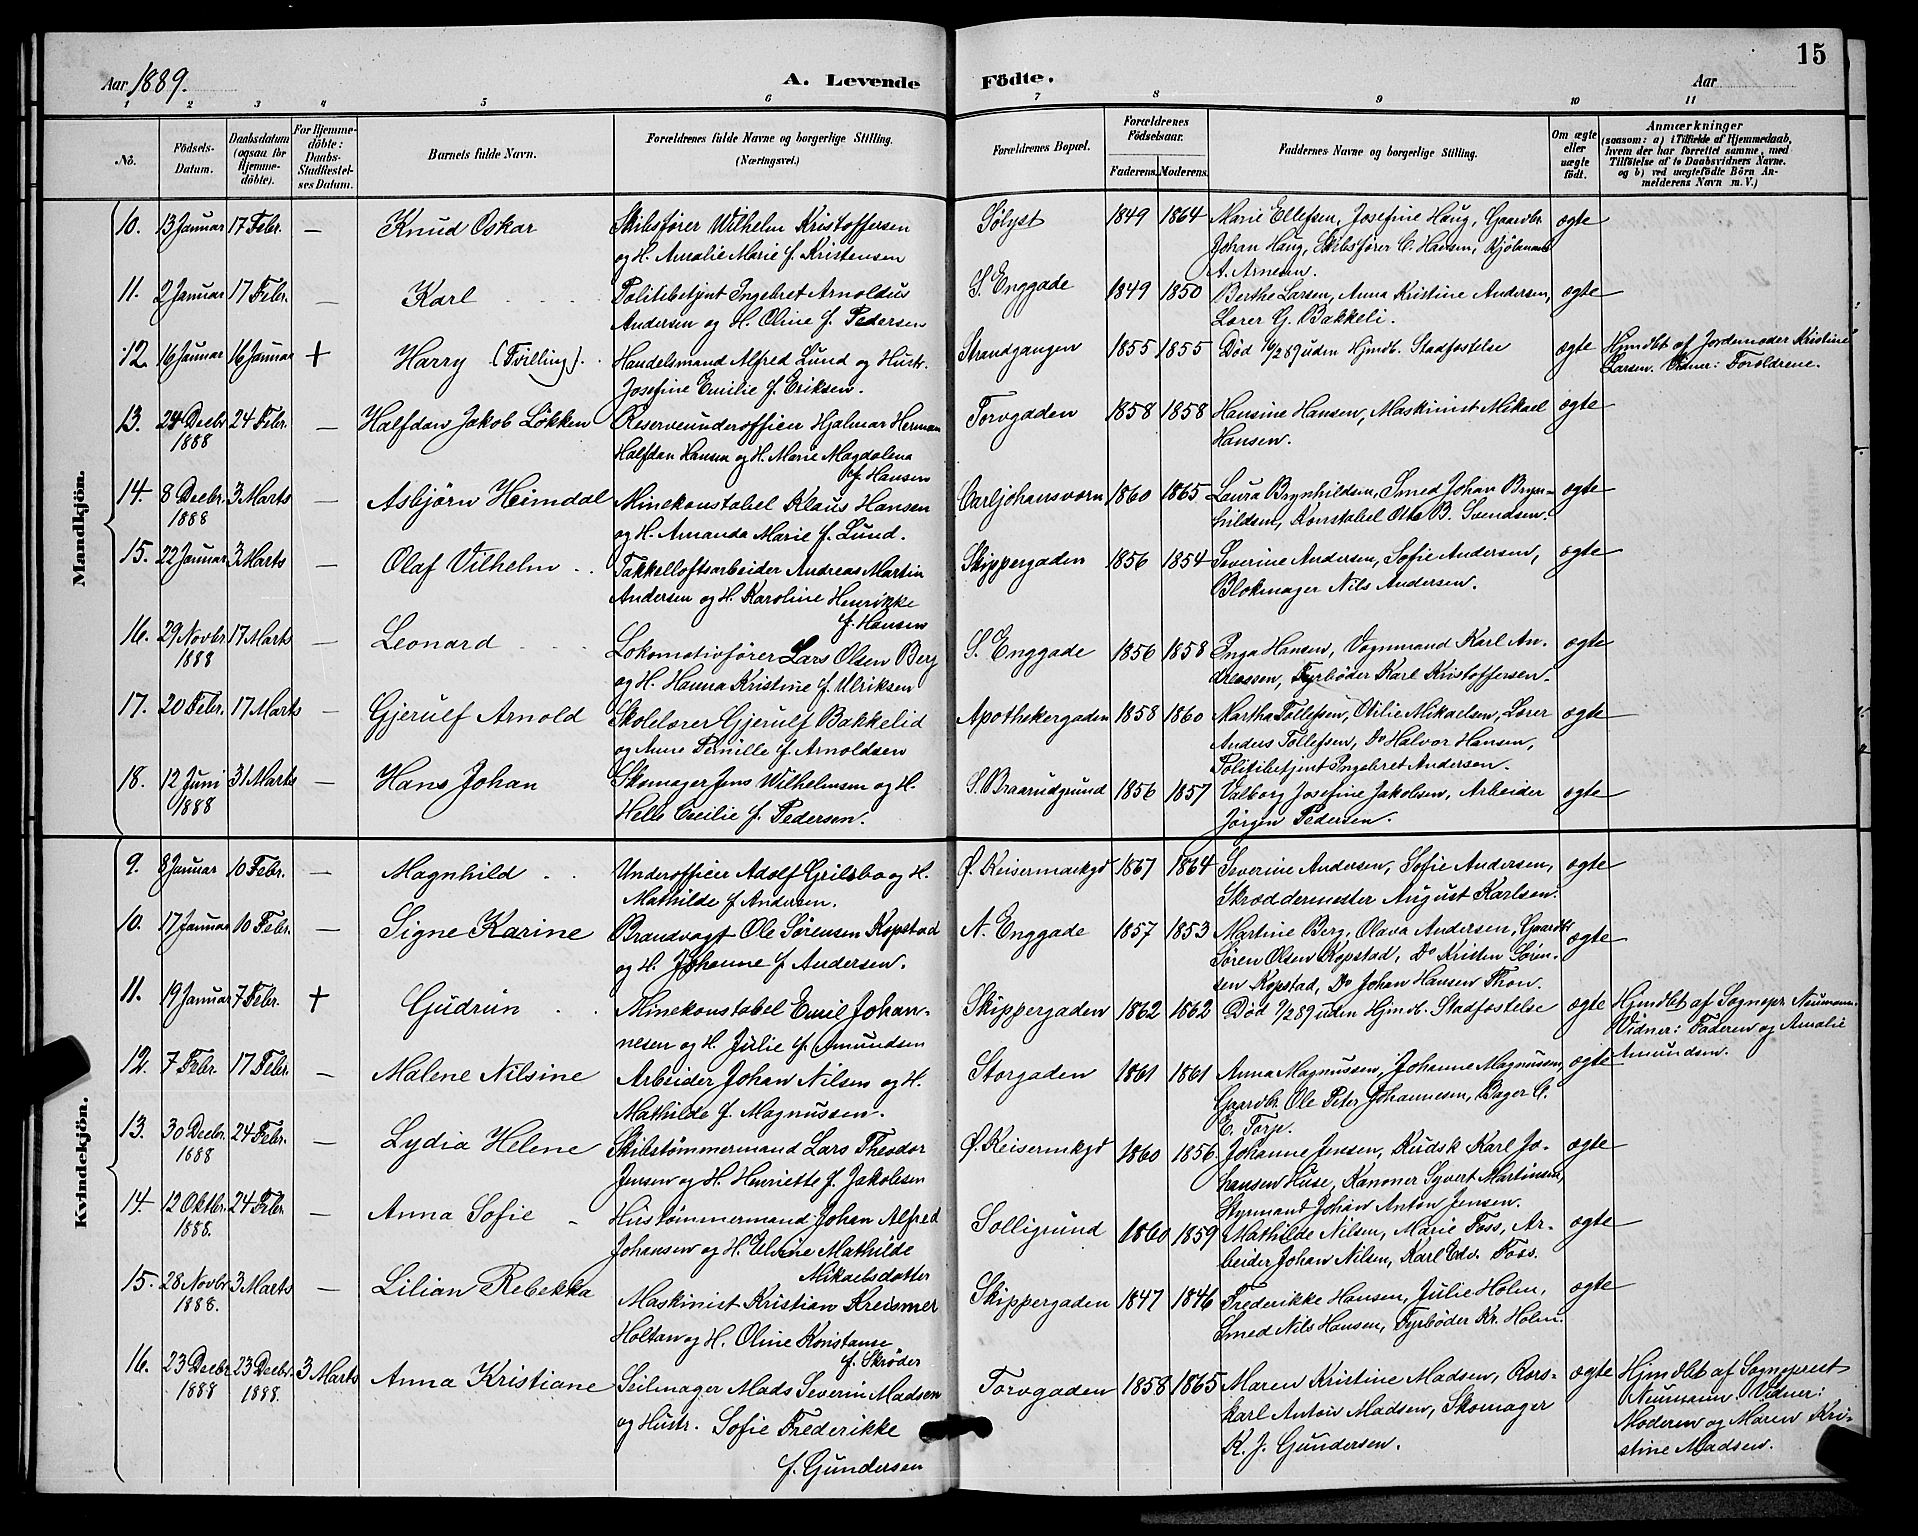 15
Aar 1889.
A. Levende Födte.
Aar
1 2 3 4 5 6 7 8 9 10 11
No.
Födsels-Datum.
Daabsdatum (ogsaa for Hjemme-döbte).
For Hjemme-döbte: Daabs-Stadfæstel-ses Datum.
Barnets fulde Navn.
Forældrenes fulde Navne og borgerlige Stilling. (Næringsvei.)
Forældrenes Bopæl.
Forældrenes Födselsaar. Faderens. Moderens.
Faddernes Navne og borgerlige Stilling.
Om ægte eller uægte født.
Anmærkninger
(saasom: a) i Tilfælde af Hjemmedaab, hvem der har forrettet samme, med Tilföielse af to Daabsvidners Navne. og b) ved uægtefödte Börn An-melderens Navn m. V.)
Mandkjön.
10. 13 Januar 17 Febr. — Knud Oskar Skibsfører Wilhelm Kristoffersen Sølyst 1849 1864 Marie Ellefsen, Josefine Haug, Gaardbr. ægte
og H. Amalie Marie f. Kristensen Johan Haug, Skibsfører C. Hansen, Kjøbmand
A. Arnesen.
11. 2 Januar 17 Febr. — Karl Politibetjent Ingebret Arnoldus S. Enggade 1849 1850 Berthe Larsen, Anna Kristine Andersen, ægte
Andersen og H. Oline f. Pedersen Lærer G. Bakkeli.
12. 16 Januar 16 Januar + Harry (Tvilling). Handelsmand Alfred Lund og Hustr. Strandgangen 1855 1855 Død 16/2 89 uden Hjmdb. Stadfæstelse ægte Hjmdbt af Jordemoder Kristine
Josefine Emilie f. Eriksen. Larsen. Vidner: Forældrene.
13. 24 Decbr 1888 24 Febr. — Halfdan Jakob Løkken Reserveunderofficier Hjalmar Herman Torvgaden 1858 1858 Hansine Hansen, Maskinist Mikael ægte
Halfdan Hansen og H. Marie Magdalena Hansen.
f. Hansen
14. 8 Decbr. 1888 3 Marts — Asbjørn Heimdal Minekonstabel Klaus Hansen Carljohansværn 1860 1865 Laura Brynhildsen, Smed Johan Bryn- ægte
og H. Amanda Marie f. Lund. hildsen, Konstabel Otto B. Svendsen.
15. 22 Januar 3 Marts — Olaf Vilhelm Takkelloftsarbeider Andreas Martin Skippergaden 1856 1854 Severine Andersen, Sofie Andersen, ægte
Andersen og H. Karoline Henrikke Blokmager Nils Andersen.
f. Hansen
16. 29 Novbr 1888 17 Marts — Leonard Lokomotivfører Lars Olsen Berg S. Enggade 1856 1858 Inga Hansen, Vognmand Karl An- ægte
og H. Hanna Kristine f. Ulriksen dreassen, Fyrbøder Karl Kristoffersen.
17. 20 Febr. 17 Marts — Gjerulf Arnold Skolelærer Gjerulf Bakkelid Apothekergaden 1858 1860 Martha Tollefsen, Otilie Mikaelsen, Lærer ægte
og Anne Pernille f. Arnoldsen Anders Tollefsen, Do Halvor Hansen,
Politibetjent Ingebret Andersen.
18. 12 Juni 1888 31 Marts — Hans Johan Skomager Jens Wilhelmsen og H. S. Braarudgrund 1856 1857 Valborg Josefine Jakobsen, Arbeider ægte
Helle Cecilie f. Pedersen. Jørgen Pedersen.
Kvindekjön.
9. 8 Januar 10 Febr. — Magnhild Underofficier Adolf Grilsbo og H. Ø. Keisermarkgd 1867 1864 Severine Andersen, Sofie Andersen, ægte
Mathilde f. Andersen. Skræddermester August Karlsen.
10. 17 Januar 10 Febr. — Signe Karine Brandvagt Ole Sørensen Kopstad N. Enggade 1857 1853 Martine Berg, Olava Andersen, Gaardbr. ægte
og H. Johanne f Andersen. Søren Olsen Kopstad, Do Kristen Søren-
sen Kopstad, Do Johan Hansen Thon.
11. 19 Januar 7 Febr. + Gudrun Minekonstabel Emil Johan- Skippergaden 1862 1862 Død 9/2 89 uden Hjmdb. Stadfæstelse ægte Hjmdbt af Sognepr. Neumann.
nesen og H. Julie f. Amundsen Vidner: Faderen og Amalie
Amundsen.
12. 7 Febr. 17 Febr. — Malene Nilsine Arbeider Johan Nilsen og H. Storgaden 1861 1861 Anna Magnussen, Johanne Magnussen, ægte
Mathilde f. Magnussen. Gaardbr. Ole Peter Johannesen, Bager C.
E. Torp.
13. 30 Decbr. 1888 24 Febr. — Lydia Helene Skibstømmermand Lars Theodor Ø. Keisermkgd 1860 1856 Johanne Jensen, Kudsk Karl Jo- ægte
Jensen og H. Henriette f. Jakobsen hansen Huse, Kanoner Syvert Martinsen,
Styrmand Johan Anton Jensen.
14. 12 Oktbr. 1888. 24 Febr. — Anna Sofie Hustømmermand Johan Alfred Solligrund 1860 1859 Mathilde Nilsen, Marie Foss, Ar- ægte
Johansen og H. Elvine Mathilde beider Johan Nilsen, Karl Edv. Foss.
Mikaelsdatter
15. 28 Novbr 1888. 3 Marts — Lilian Rebekka Maskinist Kristian Kreismer Skippergaden 1847 1846 Frederikke Hansen, Julie Holm, ægte
Holtan og H. Oline Konstanse Smed Nils Hansen, Fyrbøder Kr. Holm.
f. Skrøder
16. 23 Decbr 1888 23 Decbr. 1888. 3 Marts Anna Kristiane Seilmager Mads Severin Madsen Torvgaden 1858 1865 Maren Kristine Madsen, Rors- ægte Hjmdbt af Sogneprest
og Hustr. Sofie Frederikke karl Anton Madsen, Skomager Neumann. Vidner:
f. Gundersen K. J. Gundersen. Moderen og Maren Kri-
stine Madsen.